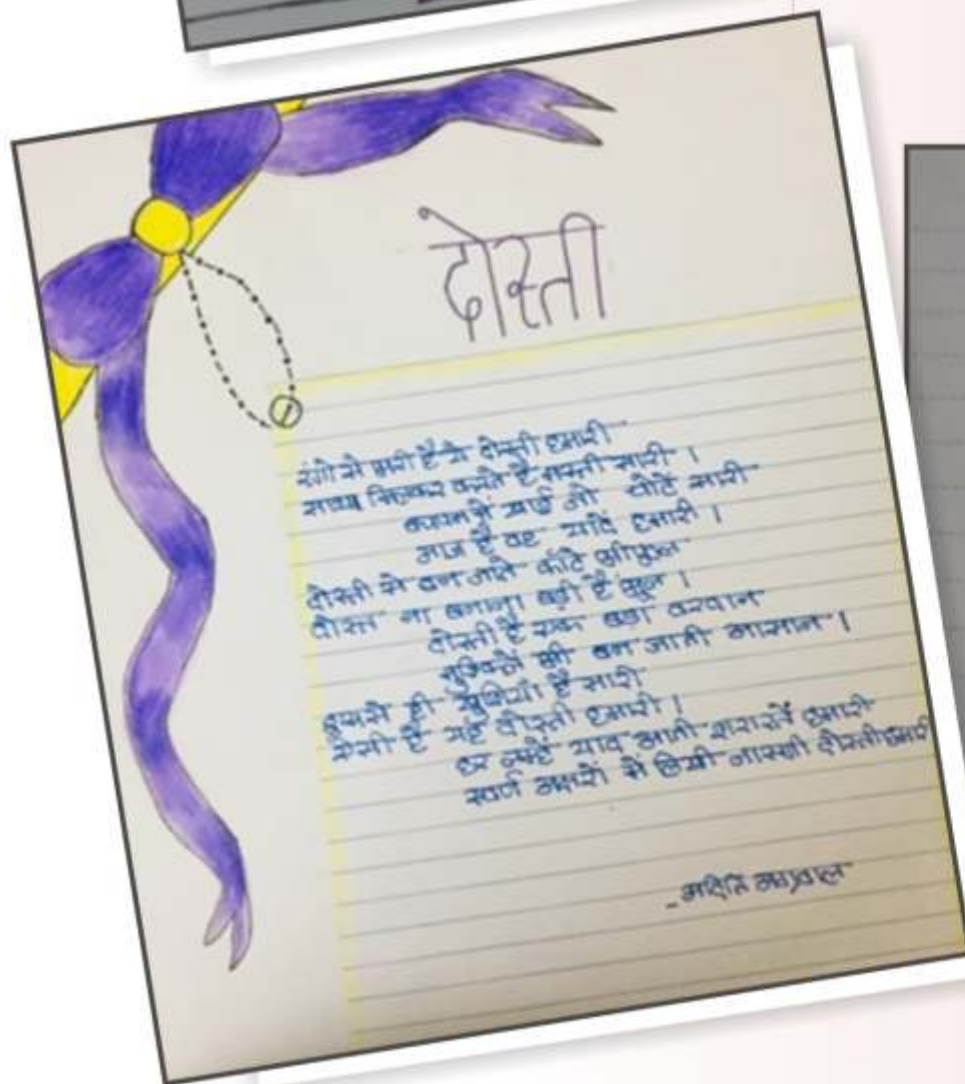 दोस्ती
रंगो से भरी है ये दोस्ती हमारी
साथ मिलकर करते है मस्ती सारी ।
बचपन में खाई जो चोटें सारी
आज है वह यादें हमारी ।
दोस्ती से बन जाते काँटे भी फूल
दोस्त ना बनाना बड़ी है भूल ।
दोस्ती है एक बड़ा वरदान
मुश्किलें भी बन जाती आसान ।
इससे ही खुशियाँ है सारी
ऐसी है यह दोस्ती हमारी ।
हर जगह याद आती शरारतें हमारी
स्वर्ण अक्षरों से लिखी जाएगी दोस्ती हमारी
- अदिति अग्रवाल